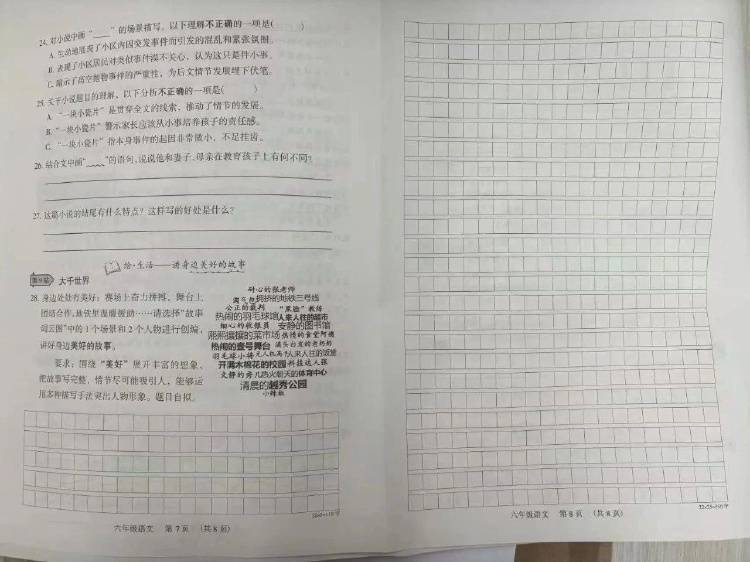 24. 对小说中画"____"的场景描写，以下理解不正确的一项是(　　)
A. 生动地展现了小区内因突发事件而引发的混乱和紧张氛围。
B. 表现了小区居民对类似事件漠不关心，认为这只是件小事。
C. 暗示了高空抛物事件的严重性，为后文情节发展埋下伏笔。
25. 关于小说题目的理解，以下分析不正确的一项是(　　)
A. "一块小瓷片"是贯穿全文的线索，推动了情节的发展。
B. "一块小瓷片"警示家长应该从小事培养孩子的责任感。
C. "一块小瓷片"指本身事件的起因非常微小，不足挂齿。
26. 结合文中画"﹏﹏"的语句，说说他和妻子、母亲在教育孩子上有何不同？
27. 这篇小说的结尾有什么特点？这样写的好处是什么？
绘·生活——讲身边美好的故事
大千世界
28. 身边处处有美好：赛场上奋力拼搏，舞台上
团结合作，地铁里温暖援助……请选择"故事
词云图"中的1个场景和2个人物进行创编，
讲好身边美好的故事。
要求：围绕"美好"展开丰富的想象，
把故事写完整，情节尽可能吸引人，能够运
用多种描写手法突出人物形象。题目自拟。
耐心的张老师
拥挤的地铁三号线
公正的裁判 "黑脸"教练
热闹的羽毛球馆 人来人往的超市
细心的收银员 安静的图书馆
熙熙攘攘的菜市场 热情的食堂阿姨
热闹的壹号舞台 满头白发的老奶奶
羽毛球小将 无人机高手 人来人往的饭堂
开满木棉花的校园 科技达人张
文静的肖儿 热火朝天的体育中心
清晨的越秀公园
小辣椒
六年级语文　第7页　(共8页)
六年级语文　第8页　(共8页)